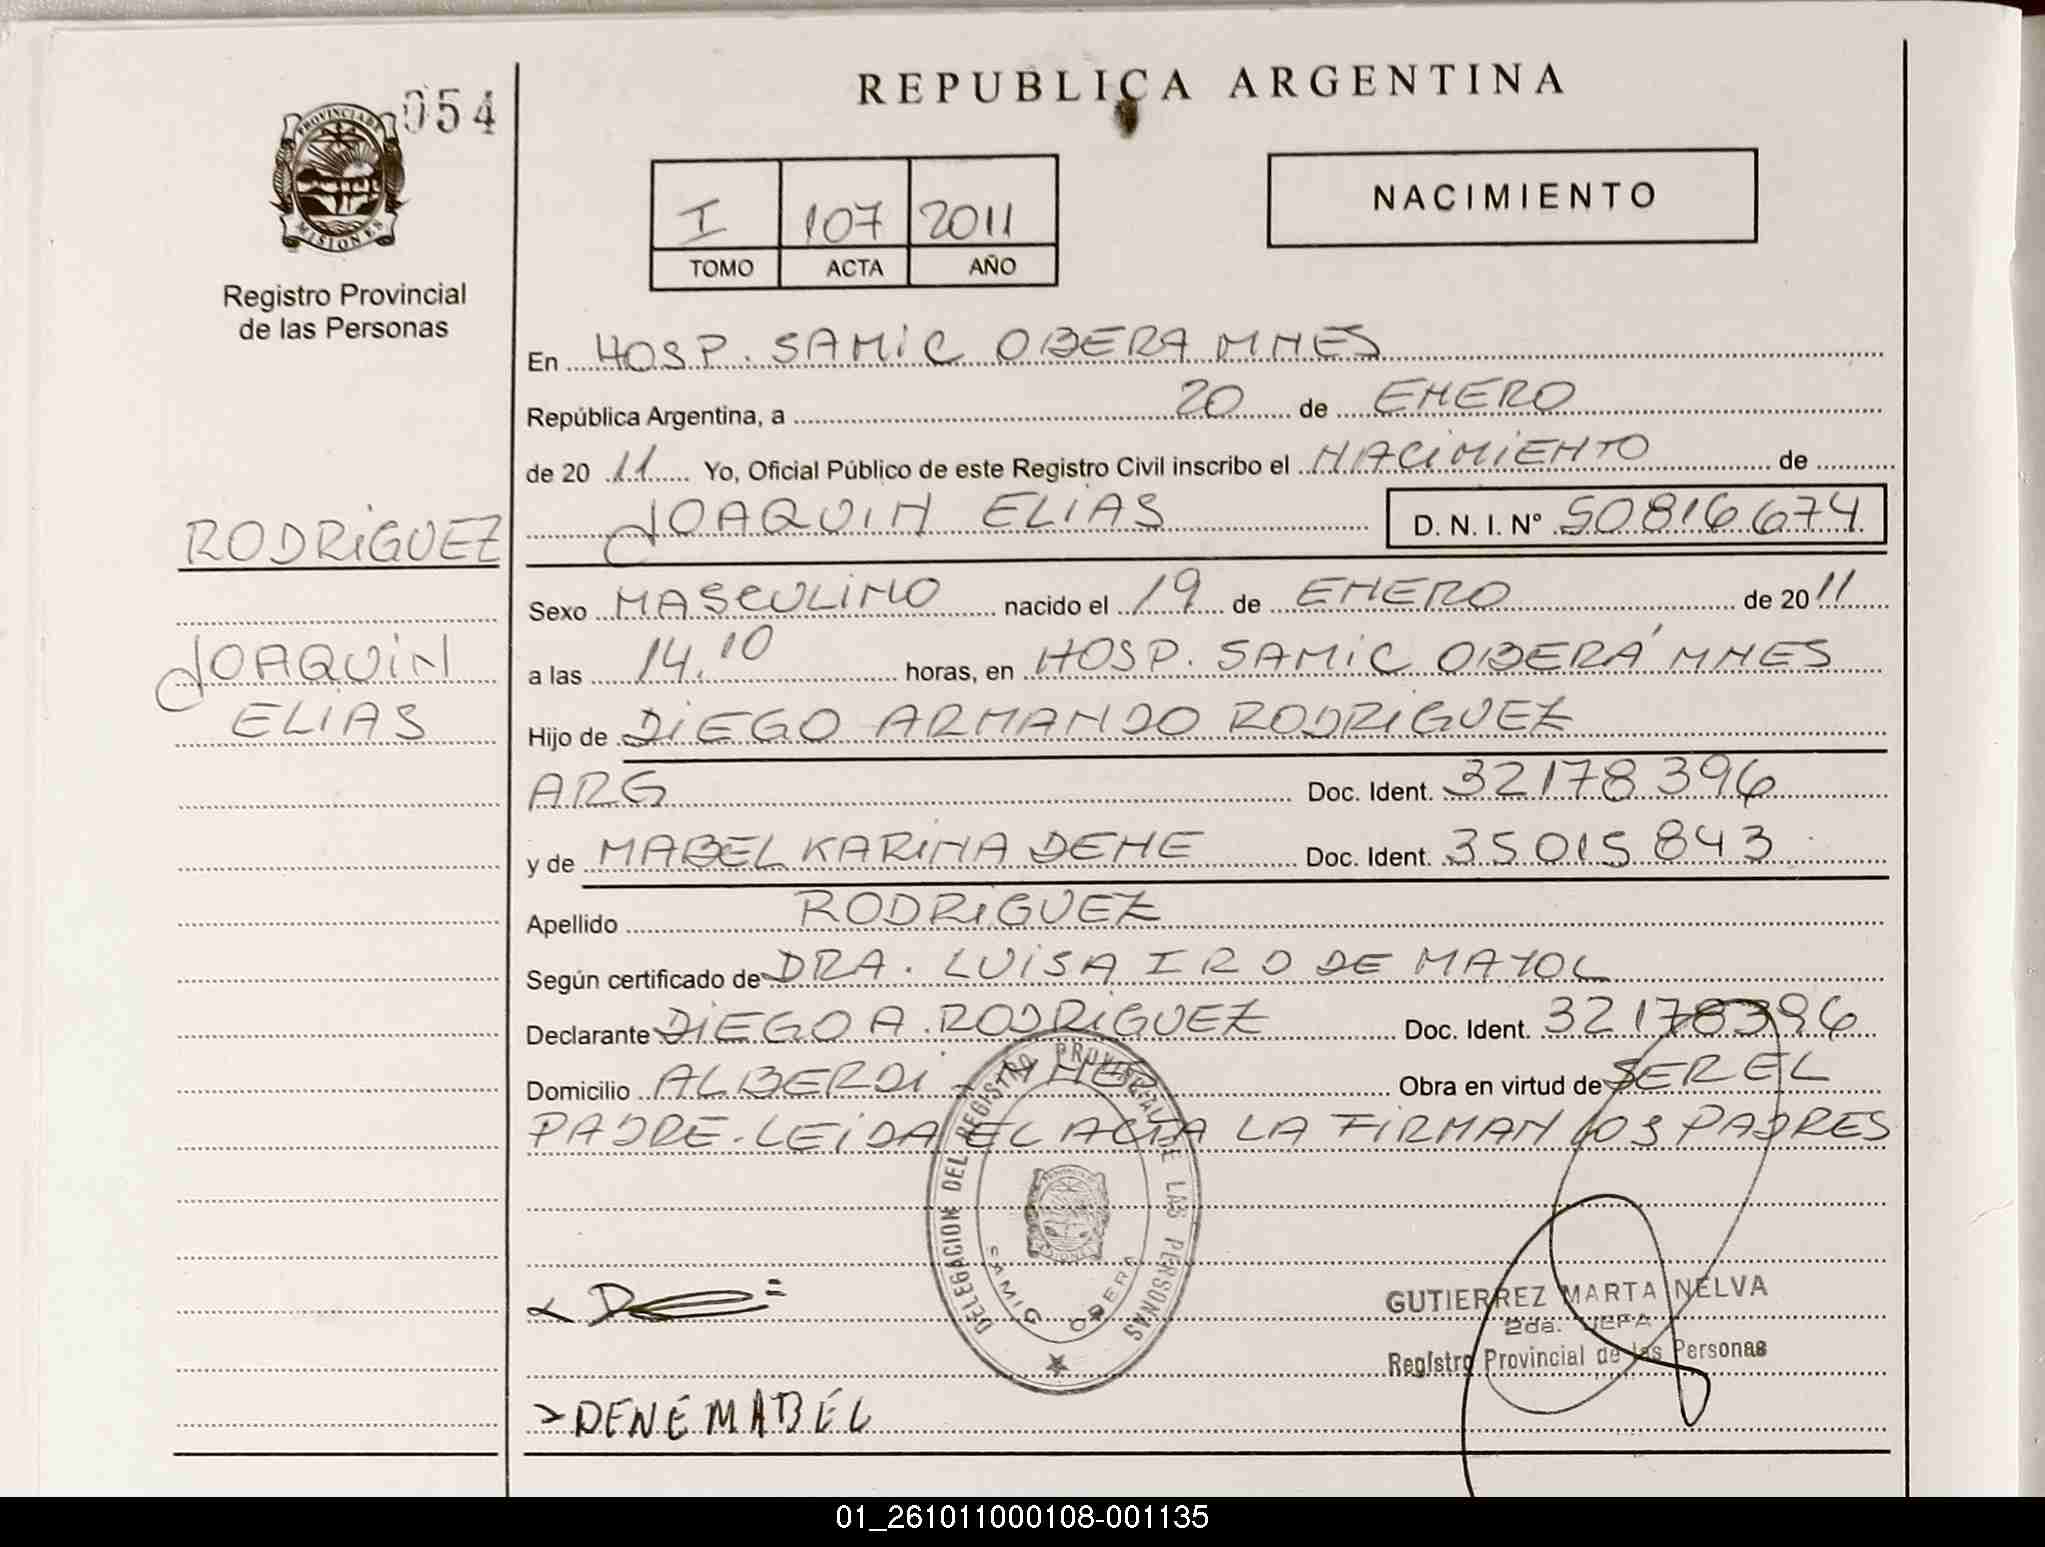 054
REPUBLICA ARGENTINA
PROVINCIA DE MISIONES
Registro Provincial
de las Personas
I 107 2011
TOMO ACTA AÑO
NACIMIENTO
En HOSP. SAMIC OBERA MNES
República Argentina, a 20 de ENERO
de 2011 Yo, Oficial Público de este Registro Civil inscribo el NACIMIENTO de
JOAQUIN ELIAS D. N. I. Nº 50816674
RODRIGUEZ
JOAQUIN
ELIAS
Sexo MASCULINO nacido el 19 de ENERO de 2011
a las 14.10 horas, en HOSP. SAMIC OBERÁ MNES
Hijo de DIEGO ARMANDO RODRIGUEZ
ARG Doc. Ident. 32178396
y de MABEL KARINA DENE Doc. Ident. 35015843
Apellido RODRIGUEZ
Según certificado de DRA. LUISA IRO DE MAYOL
Declarante DIEGO A. RODRIGUEZ Doc. Ident. 32178396
Domicilio ALBERDI Obra en virtud de SER EL
PADRE. LEIDA EL ACTA LA FIRMAN LOS PADRES
DELEGACION DEL REGISTRO PROVINCIAL DE LAS PERSONAS
SAMIC OBERA
GUTIERREZ MARTA NELVA
2da. JEFA
Registro Provincial de las Personas
DENE MABEL
01_261011000108-001135